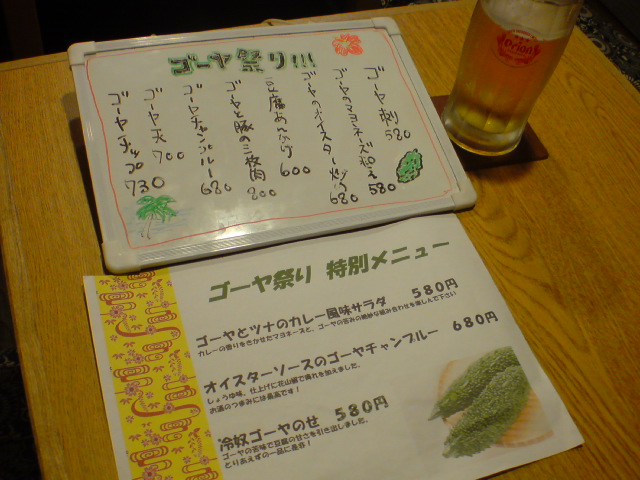 ゴーヤ祭り!!!
ゴーヤ刺し 580
ゴーヤのマヨネーズ 580
ゴーヤのオイスター炒め 680
600
ゴーヤと豚の三枚肉 800
ゴーヤチャンプルー 680
ゴーヤ天 700
ゴーヤチップ 730
Orion
ゴーヤ祭り 特別メニュー
ゴーヤとツナのカレー風味サラダ 580円
カレーの香りをきかせたマヨネーズと、ゴーヤの苦みの絶妙な組み合わせを楽しんで下さい
オイスターソースのゴーヤチャンプルー 680円
しょうゆ味、仕上げに花山椒で痺れを加えました。
お酒のつまみには最高です!
冷奴ゴーヤのせ 580円
ゴーヤの苦味で豆腐の甘さを引き出しました。
とりあえずの一品に是非!